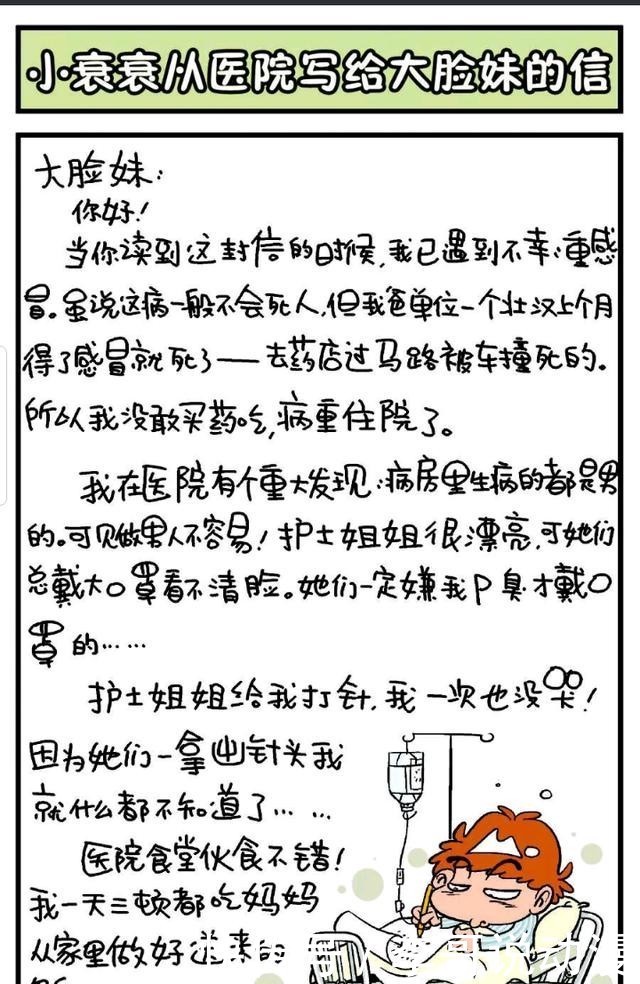 小衰衰从医院写给大脸妹的信
大脸妹：
你好！
当你读到这封信的时候，我已遇到不幸：重感
冒。虽说这病一般不会死人，但我爸单位一个壮汉上个月
得了感冒就死了——去药店过马路被车撞死的。
所以我没敢买药吃，病重住院了。
我在医院有个重大发现：病房里生病的都是男
的。可见做男人不容易！护士姐姐很漂亮，可她们
总戴大口罩看不清脸。她们一定嫌我口臭才戴口
罩的……
护士姐姐给我打针，我一次也没哭！
因为她们一拿出针头我
就什么都不知道了……
医院食堂伙食不错！
我一天三顿都吃妈妈
从家里做好送来